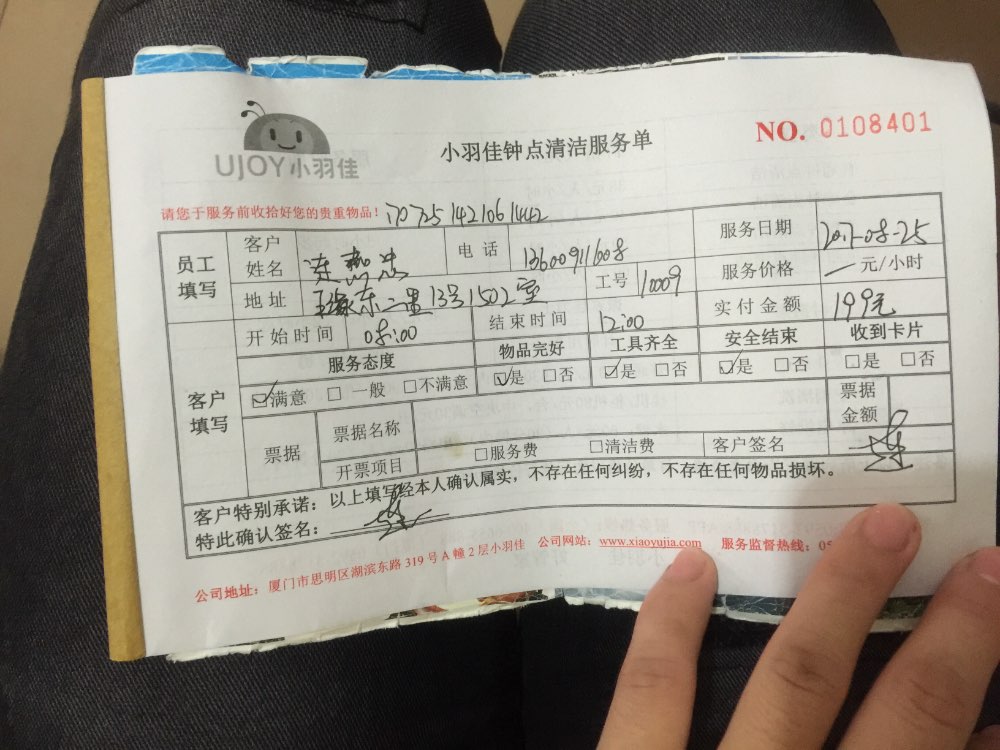 UJOY小羽佳
小羽佳钟点清洁服务单
NO. 0108401
请您于服务前收拾好您的贵重物品！
员工填写 客户姓名 电话 13600911608 服务日期 2017-08-25
地址 东二里13号1502室 工号 10009 服务价格 — 元/小时
客户填写 开始时间 08:00 结束时间 12:00 实付金额 199元
服务态度 物品完好 工具齐全 安全结束 收到卡片
☑满意 □一般 □不满意 ☑是 □否 ☑是 □否 ☑是 □否 □是 □否
票据 票据名称 票据金额
开票项目 □服务费 □清洁费 客户签名
客户特别承诺：以上填写经本人确认属实，不存在任何纠纷，不存在任何物品损坏。
特此确认签名：
公司地址：厦门市思明区湖滨东路319号A幢2层小羽佳 公司网站：www.xiaoyujia.com 服务监督热线：05